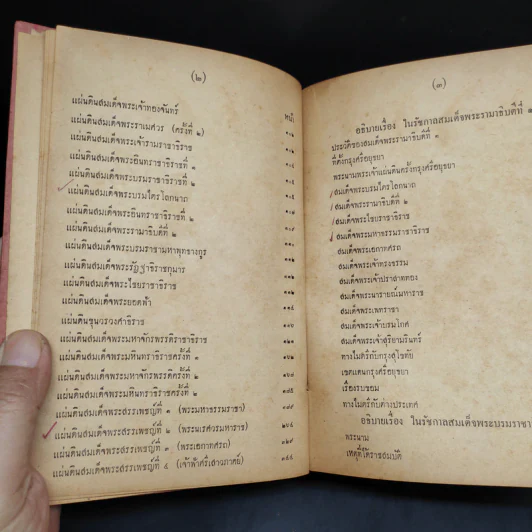 (๒)
หน้า
แผ่นดินสมเด็จพระเจ้าทองจันทร์
แผ่นดินสมเด็จพระราเมศวร (ครั้งที่ ๒)
แผ่นดินสมเด็จพระเจ้ารามราชาธิราช
แผ่นดินสมเด็จพระอินทราชาธิราชที่ ๑
แผ่นดินสมเด็จพระบรมราชาธิราชที่ ๒
แผ่นดินสมเด็จพระบรมไตรโลกนาถ
แผ่นดินสมเด็จพระอินทราชาธิราชที่ ๒
แผ่นดินสมเด็จพระรามาธิบดีที่ ๒
แผ่นดินสมเด็จพระบรมราชามหาพุทธางกูร
แผ่นดินสมเด็จพระรัฏฐาธิราชกุมาร
แผ่นดินสมเด็จพระไชยราชาธิราช
แผ่นดินสมเด็จพระยอดฟ้า
แผ่นดินขุนวรวงศาธิราช
แผ่นดินสมเด็จพระมหาจักรพรรดิราชาธิราช
แผ่นดินสมเด็จพระมหินทราธิราชครั้งที่ ๑
แผ่นดินสมเด็จพระมหาจักรพรรดิครั้งที่ ๒
แผ่นดินสมเด็จพระมหินทราธิราชครั้งที่ ๒
แผ่นดินสมเด็จพระสรรเพชญ์ที่ ๑ (พระมหาธรรมราชา)
แผ่นดินสมเด็จพระสรรเพชญ์ที่ ๒ (พระนเรศวรมหาราช)
แผ่นดินสมเด็จพระสรรเพชญ์ที่ ๓ (พระเอกาทศรถ)
แผ่นดินสมเด็จพระสรรเพชญ์ที่ ๔ (เจ้าฟ้าศรีเสาวภาคย์)
(๓)
อธิบายเรื่อง ในรัชกาลสมเด็จพระรามาธิบดีที่ ๑
ประวัติของสมเด็จพระรามาธิบดีที่ ๑
ที่ตั้งกรุงศรีอยุธยา
พระนามพระเจ้าแผ่นดินครั้งกรุงศรีอยุธยา
สมเด็จพระบรมไตรโลกนาถ
สมเด็จพระรามาธิบดีที่ ๒
สมเด็จพระไชยราชาธิราช
สมเด็จพระมหาธรรมราชาธิราช
สมเด็จพระเอกาทศรถ
สมเด็จพระเจ้าทรงธรรม
สมเด็จพระเจ้าปราสาททอง
สมเด็จพระนารายณ์มหาราช
สมเด็จพระเพทราชา
สมเด็จพระเจ้าบรมโกศ
สมเด็จพระเจ้าสุริยามรินทร์
ทางไมตรีกับกรุงสุโขทัย
เขตแดนกรุงศรีอยุธยา
เรื่องรบขอม
ทางไมตรีกับต่างประเทศ
อธิบายเรื่อง ในรัชกาลสมเด็จพระบรมราชา
พระนาม
เหตุที่ได้ราชสมบัติ